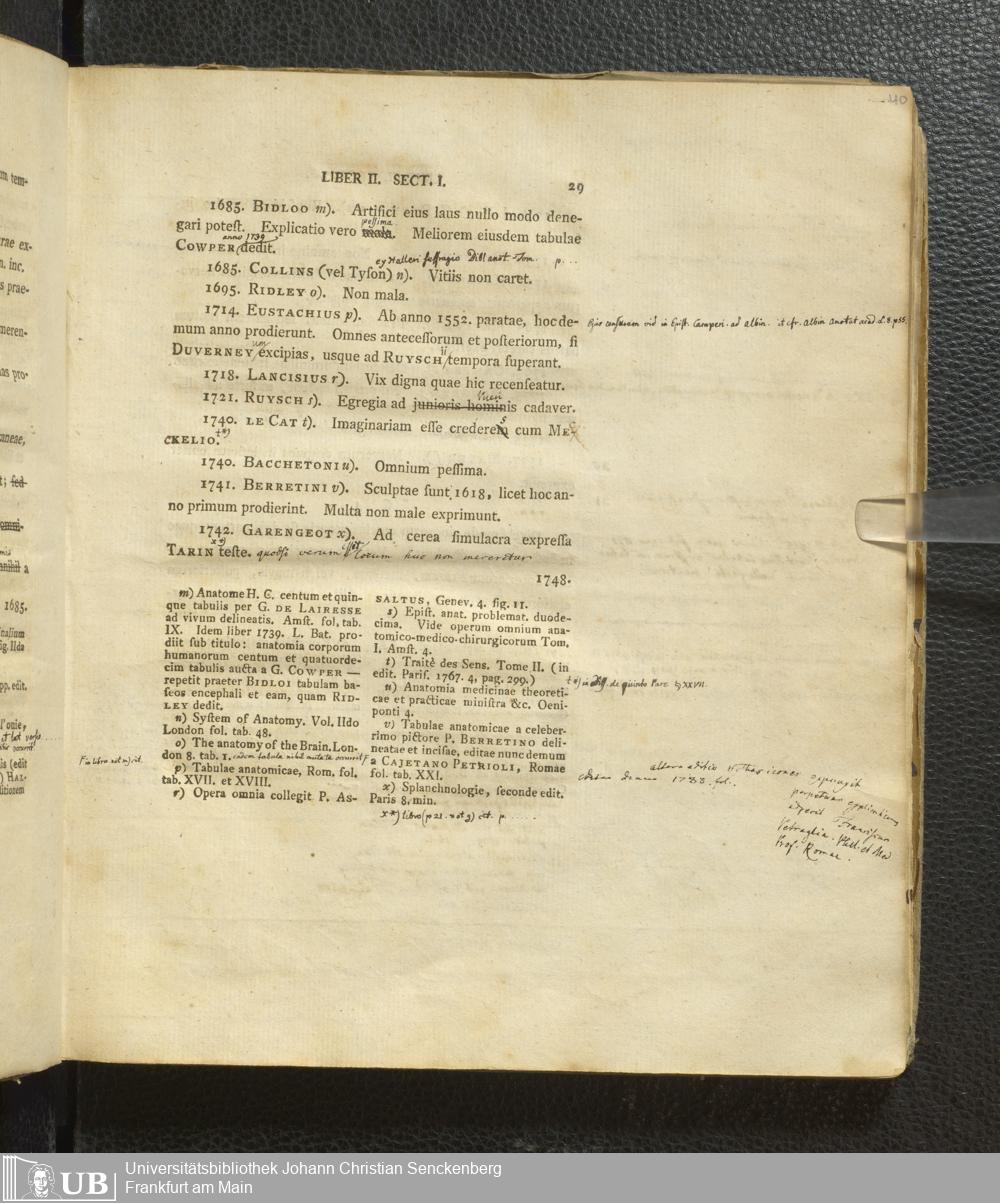 40
LIBER II. SECT. I.
29
1685. BIDLOO m). Artifici eius laus nullo modo dene-
pessima
gari potest. Explicatio vero mala. Meliorem eiusdem tabulae
anno 1739
COWPER dedit.
ex Halleri suffragio Bibl anat Tom. p. ..
1685. COLLINS (vel Tyson) n). Vitiis non caret.
1695. RIDLEY o). Non mala.
1714. EUSTACHIUS p). Ab anno 1552. paratae, hoc de-
mum anno prodierunt. Omnes antecessorum et posteriorum, si
DUVERNEYum excipias, usque ad RUYSCHii tempora superant.
1718. LANCISIUS r). Vix digna quae hic recenseatur.
1721. RUYSCH s). Egregia ad junioris hominis cadaver.
1740. LE CAT t). Imaginariam esse crederem cum ME-
CKELIO. t*)
1740. BACCHETONI u). Omnium pessima.
1741. BERRETINI v). Sculptae sunt 1618, licet hoc an-
no primum prodierint. Multa non male exprimunt.
1742. GARENGEOT x). Ad cerea simulacra expressa
x*)
TARIN teste. quodsi verum esset locum huc non mereretur
1748.
m) Anatome H. C. centum et quin-
que tabulis per G. DE LAIRESSE
ad vivum delineatis. Amst. fol. tab.
IX. Idem liber 1739. L. Bat. pro-
diit sub titulo: anatomia corporum
humanorum centum et quatuorde-
cim tabulis aucta a G. COWPER —
repetit praeter BIDLOI tabulam ba-
seos encephali et eam, quam RID-
LEY dedit.
n) System of Anatomy. Vol. IIdo
London fol. tab. 48.
o) The anatomy of the Brain. Lon-
don 8. tab. 1. eadem tabula nihil mutata occurrit F
p) Tabulae anatomicae, Rom. fol.
tab. XVII. et XVIII.
r) Opera omnia collegit P. As-
SALTUS, Genev. 4. fig. 11.
s) Epist. anat. problemat. duode-
cima. Vide operum omnium ana-
tomico-medico-chirurgicorum Tom.
I. Amst. 4.
t) Traité des Sens. Tome II. (in
edit. Paris. 1767. 4, pag. 299.)
u) Anatomia medicinae theoreti-
cae et practicae ministra &c. Oeni-
ponti 4.
v) Tabulae anatomicae a celeber-
rimo pictore P. BERRETINO deli-
neatae et incisae, editae nunc demum
a CAJETANO PETRIOLI, Romae
fol. tab. XXI.
x) Splanchnologie, seconde edit.
Paris 8. min.
x*) libro (p 21. not g) cit. p. .....
Ejus censuram vid in Epist. Camperi ad Albin. et cfr. Albin Annotat acad L. 8. p 55.
t*) in Diss. de quinto Pare § XXVII.
F in libro not m) cit.
altera editio
1788. fol.
perpetuam explicationem
adjecit Franciscus
Petraglia. Phil. et Med
Prof. Romae.
m tem-
rae ex-
n. inc.
s prae-
meren-
as pro-
caneae,
t; sed
omni-
nihil a
1685.
fig. IIda
pp. edit.
is (edit
) HAL-
Universitätsbibliothek Johann Christian Senckenberg
Frankfurt am Main
UB